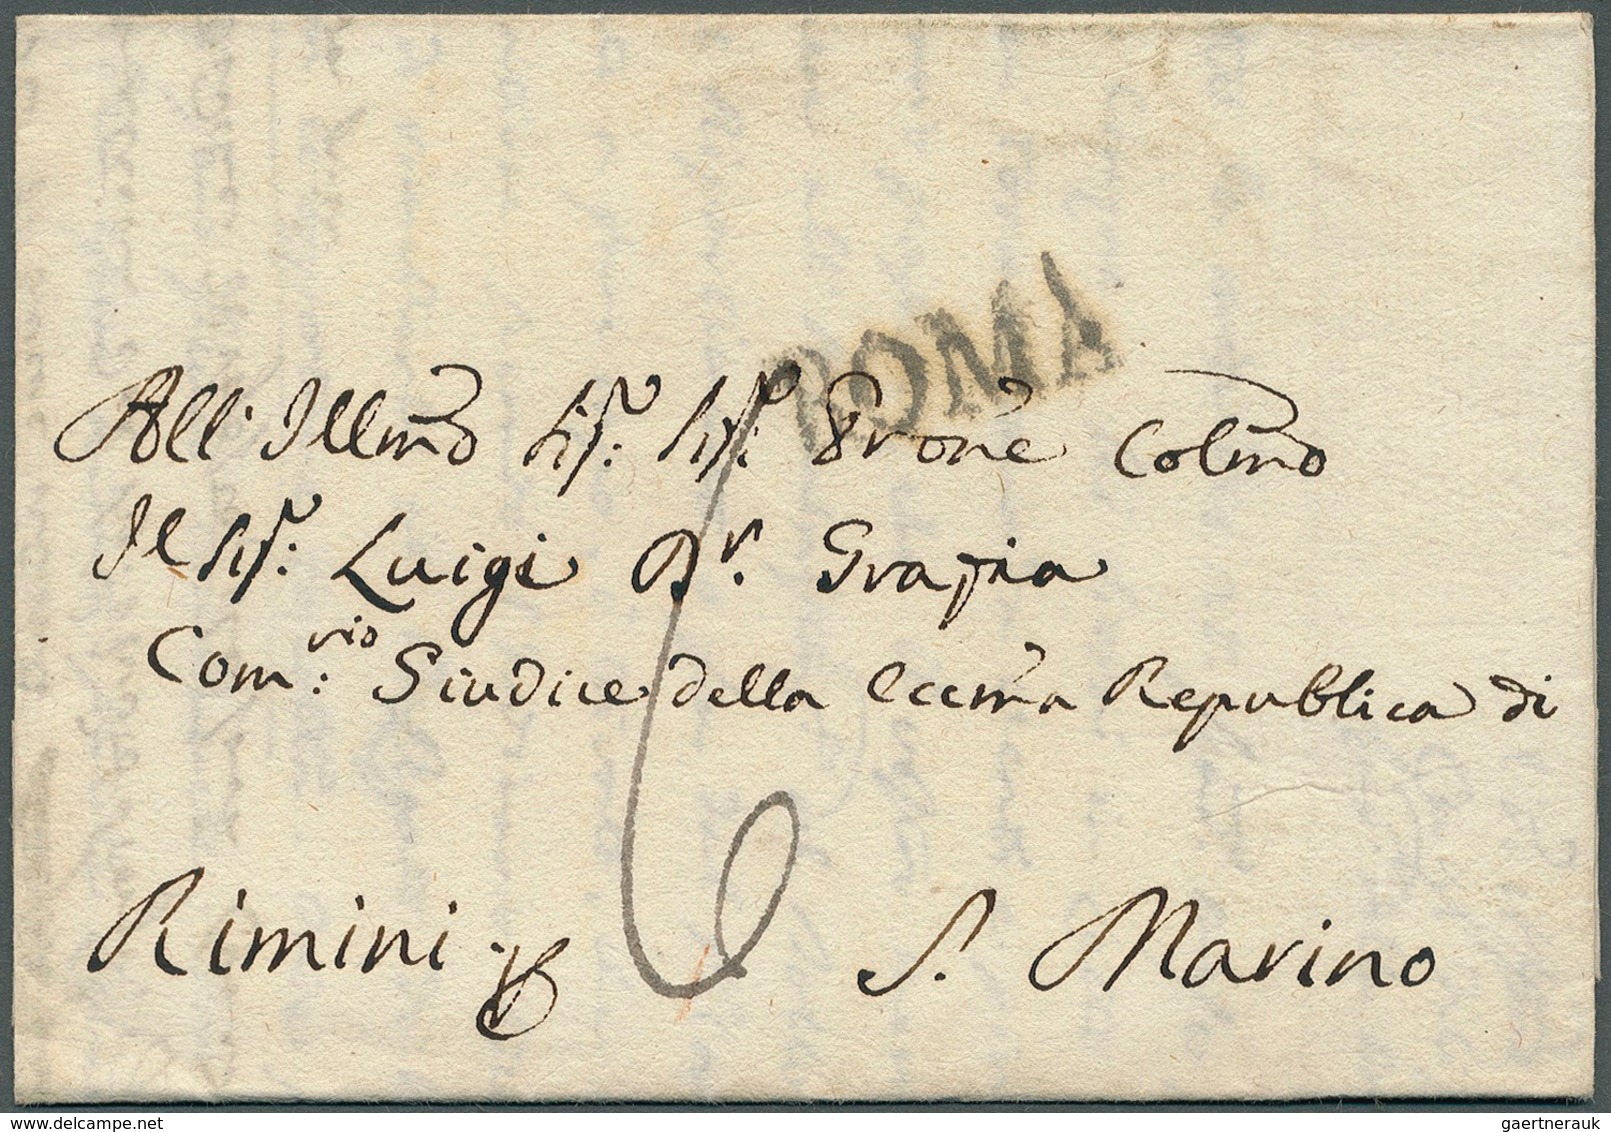 ROMA
All' Illmo Sigr: Sigr: Prone Colmo
Il Sigr: Luigi Dr. Grazia
Com:rio Giudice della Eccma Republica di
6
Rimini S. Marino
www.delcampe.net
gaertnerauk